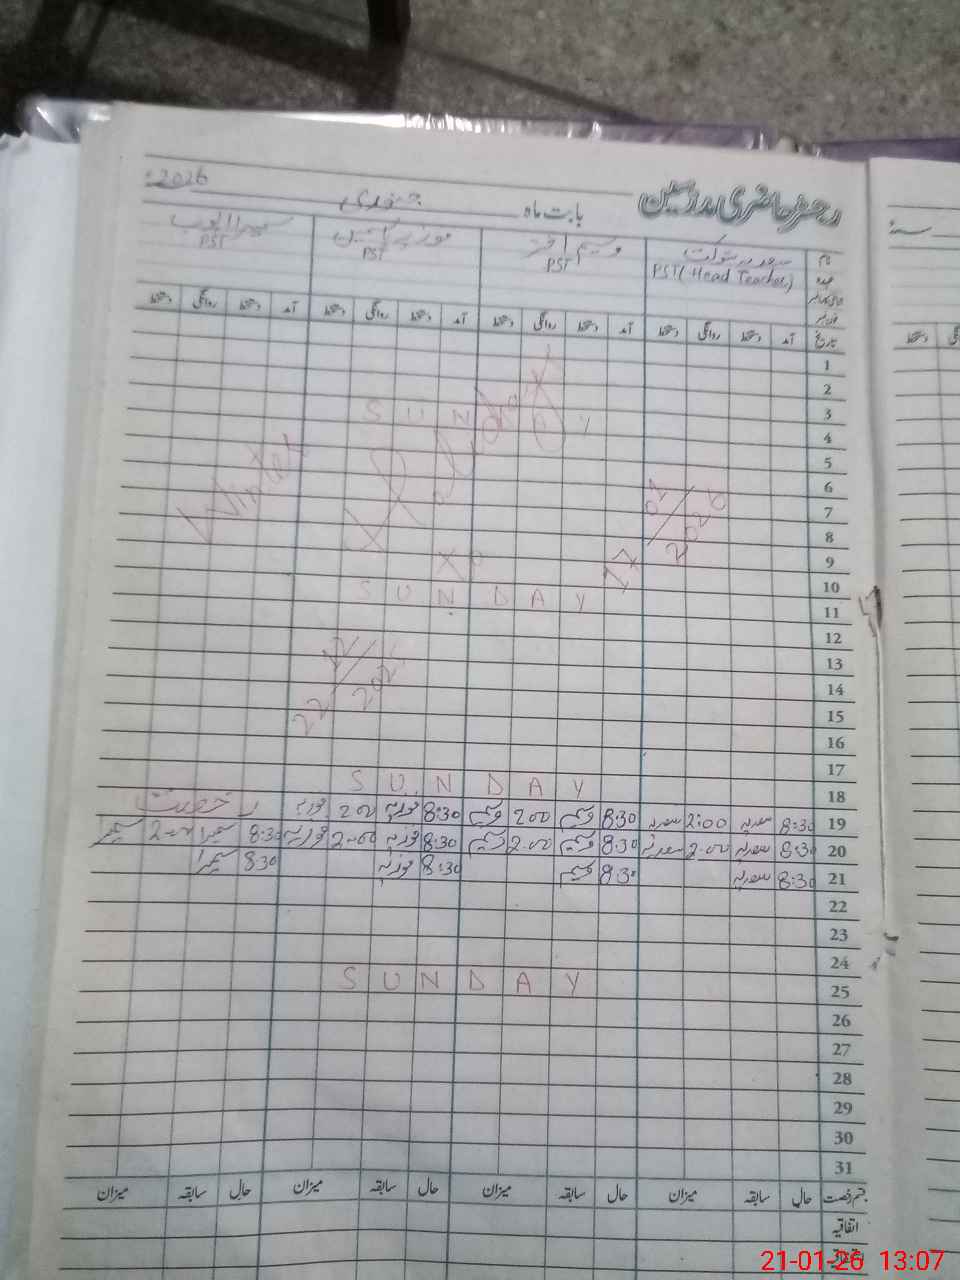 رجسٹر حاضری مدرسین بابت ماہ جنوری 2026ء
نام سعدیہ شوکت وسیم اختر فوزیہ
عہدہ PST (Head Teacher) PST PST PST
تاریخ آمد دستخط روانگی دستخط آمد دستخط روانگی دستخط آمد دستخط روانگی دستخط آمد دستخط روانگی دستخط
1
2
3
4 S U N D A Y
5
6
7
8
9
10
11 S U N D A Y
Winter Holidays
22/12/2025
To
17/01/2026
12
13
14
15
16
17
18 S U N D A Y
19 8:30 سعدیہ 2:00 سعدیہ 8:30 وسیم 2:00 وسیم 8:30 فوزیہ 2:00 فوزیہ رخصت
20 8:30 سعدیہ 2:00 سعدیہ 8:30 وسیم 2:00 وسیم 8:30 فوزیہ 2:00 فوزیہ 8:30 سمیرا 2:00 سمیرا
21 8:30 سعدیہ 8:30 وسیم 8:30 فوزیہ 8:30 سمیرا
22
23
24
25 S U N D A Y
26
27
28
29
30
31
قسم رخصت حال سابقہ میزان حال سابقہ میزان حال سابقہ میزان حال سابقہ میزان
اتفاقیہ
21-01-26 13:07